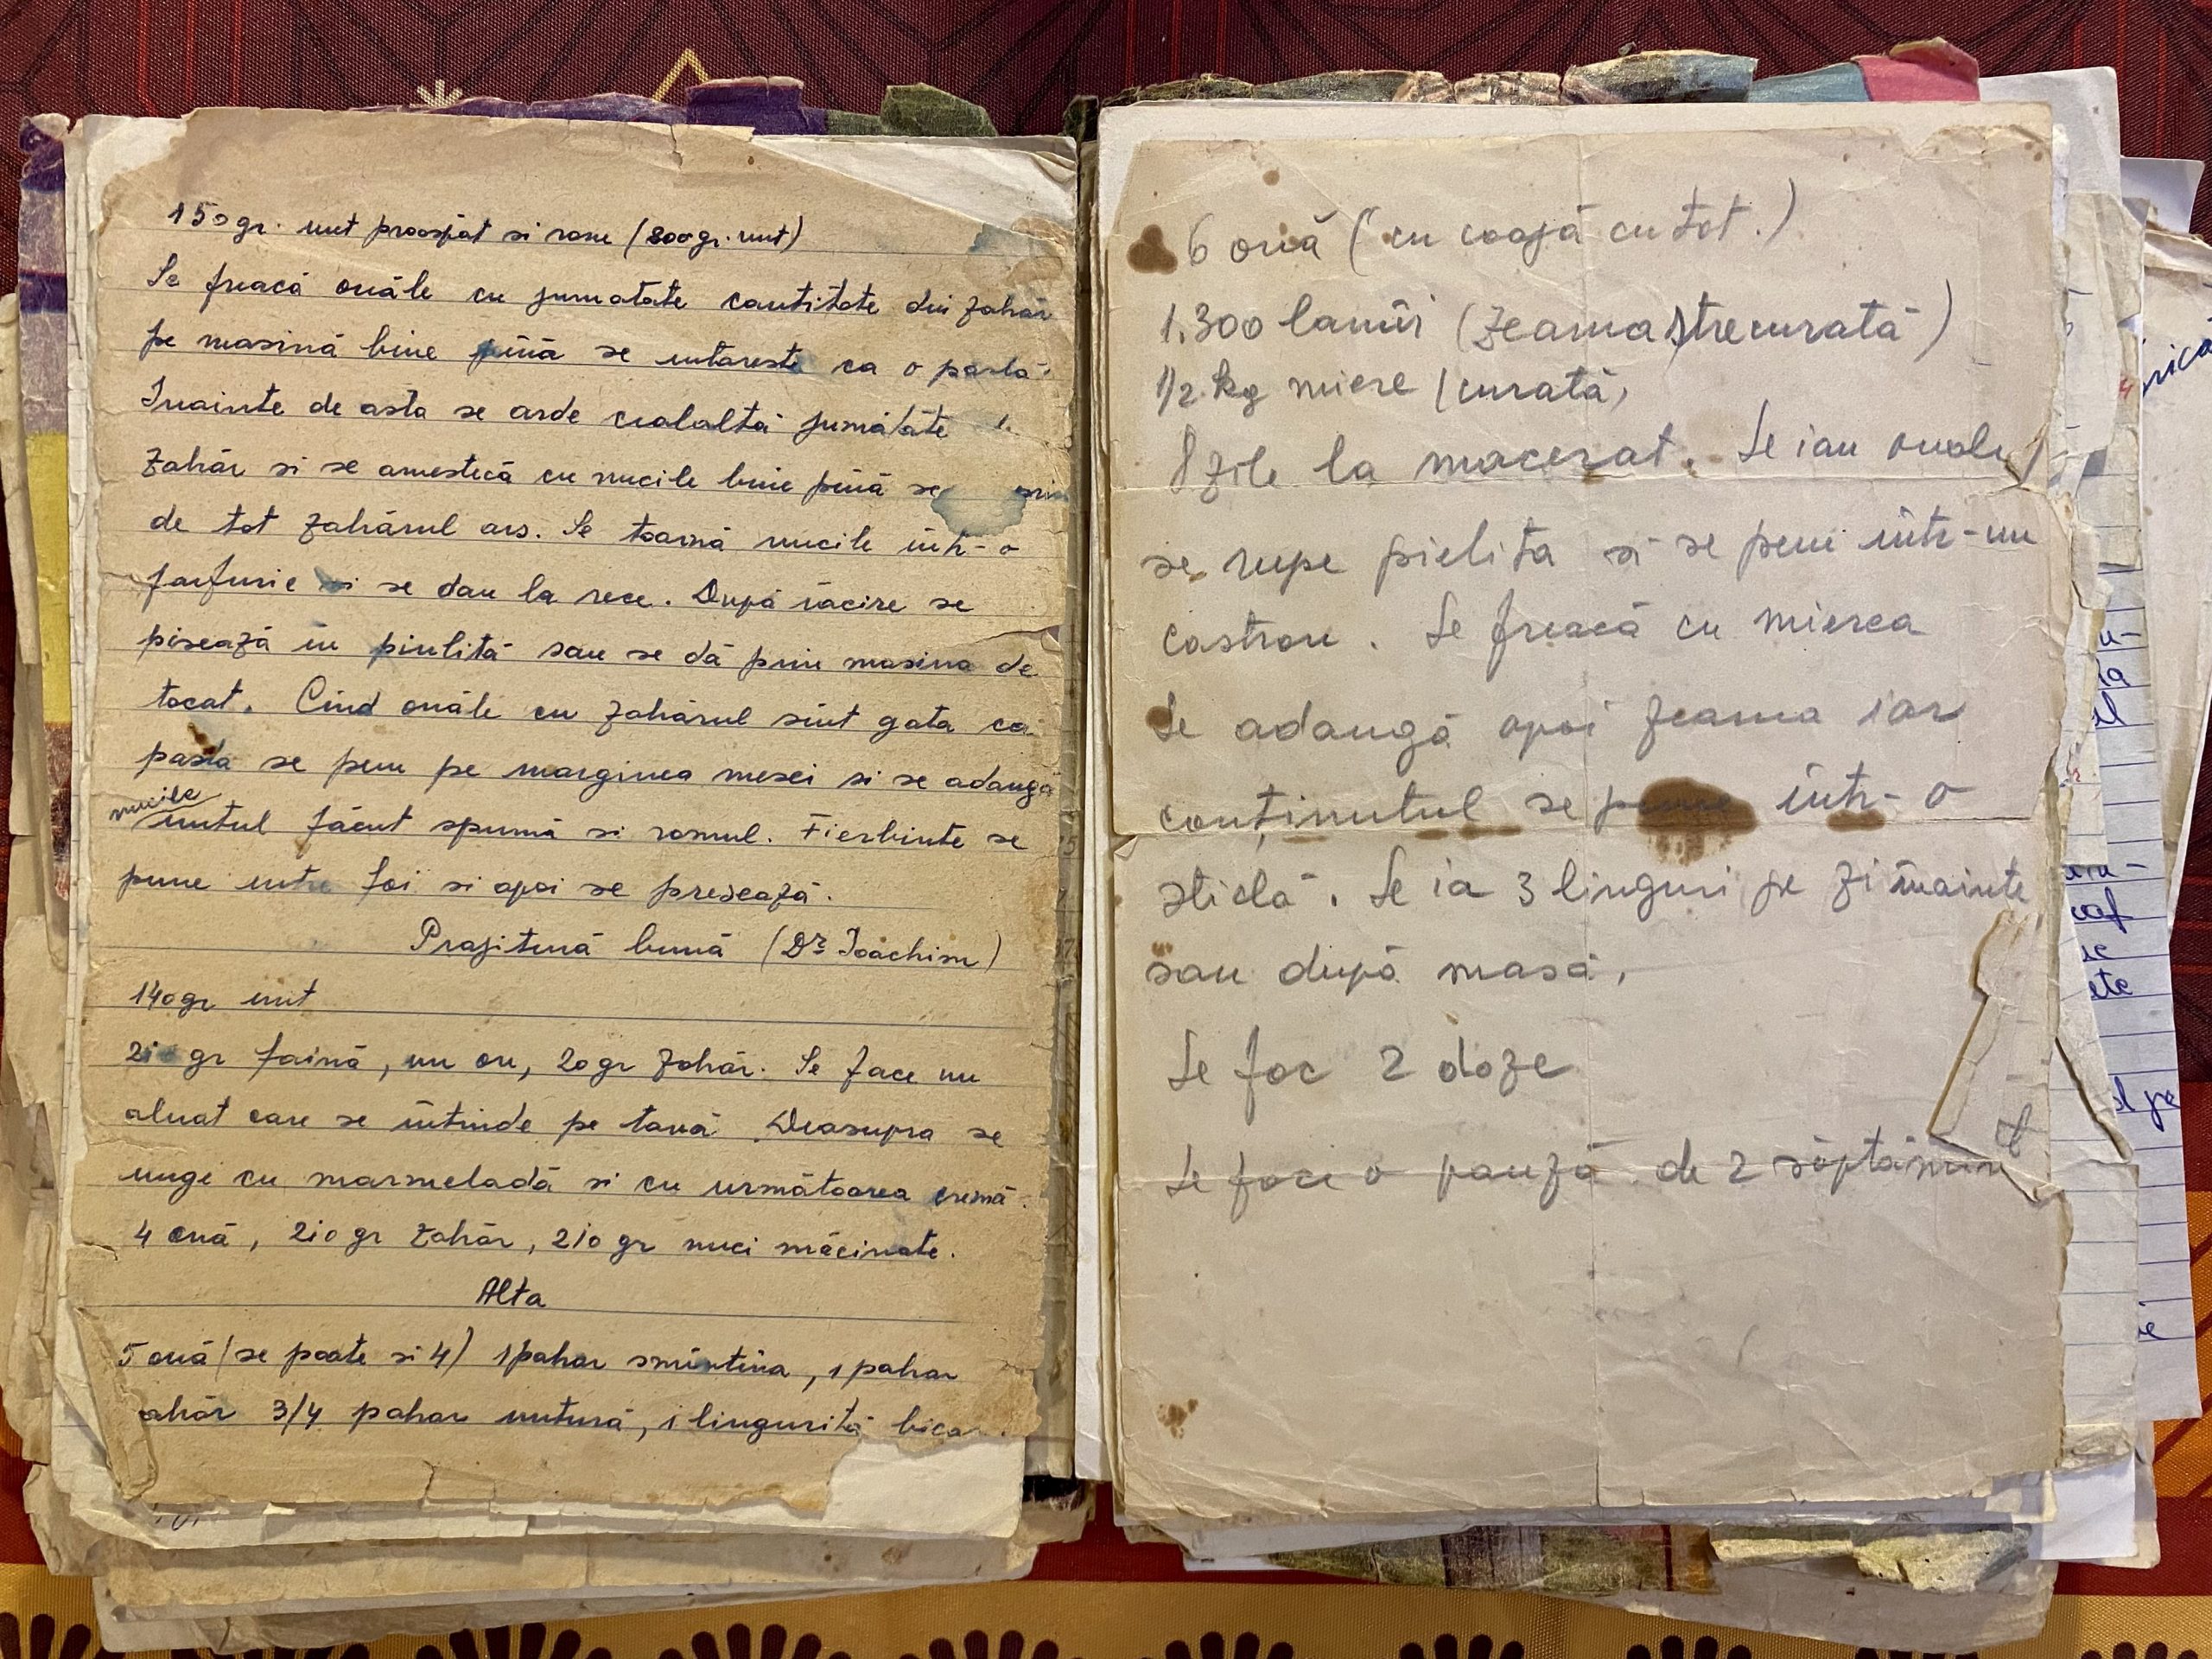 150 gr. unt proaspăt si rom (200 gr. unt)
Se freacă ouăle cu jumatate cantitate din zahăr
pe masină bine pînă se intareste ca o pastă.
Inainte de asta se arde cealaltă jumătate
zahăr si se amestecă cu nucile bine pînă se
de tot zahărul ars. Se toarnă nucile într-o
farfurie si se dau la rece. După răcire se
pisează in piulită sau se dă prin masina de
tocat. Cînd ouăle cu zahărul sînt gata ca
pasta se pun pe marginea mesei si se adaugă
nucile
untul făcut spumă si romul. Fierbinte se
pune intre foi si apoi se presează.
Prajitură bună (Dr Ioachim)
140 gr unt
210 gr faină, un ou, 20 gr zahăr. Se face un
aluat care se întinde pe tavă. Deasupra se
unge cu marmeladă si cu următoarea cremă.
4 ouă, 210 gr zahăr, 210 gr nuci măcinate.
Alta
5 ouă (se poate si 4) 1 pahar smîntîna, 1 pahar
ahăr 3/4 pahar untură, 1 lingurită bica
6 ouă (cu coajă cu tot.)
1.300 lamîi (Zeama strecurată)
1/2 kg miere (curată,
8 zile la macerat. Se iau ouale
se rupe pielita si se pun intr-un
castron. Se freacă cu mierea
Se adaugă apoi zeama iar
conținutul se pune într-o
sticlă. Se ia 3 linguri pe zi înainte
sau după masă,
Se fac 2 doze
Se face o pauză de 2 săptămîni